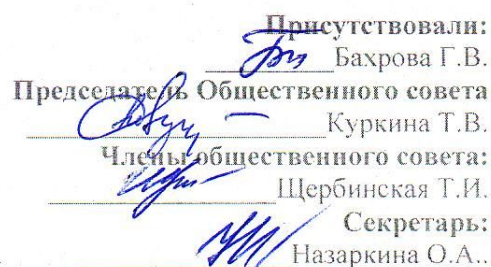 Присутствовали:
Бахрова Г.В.
Председатель Общественного совета
Куркина Т.В.
Члены общественного совета:
Щербинская Т.И.
Секретарь:
Назаркина О.А..